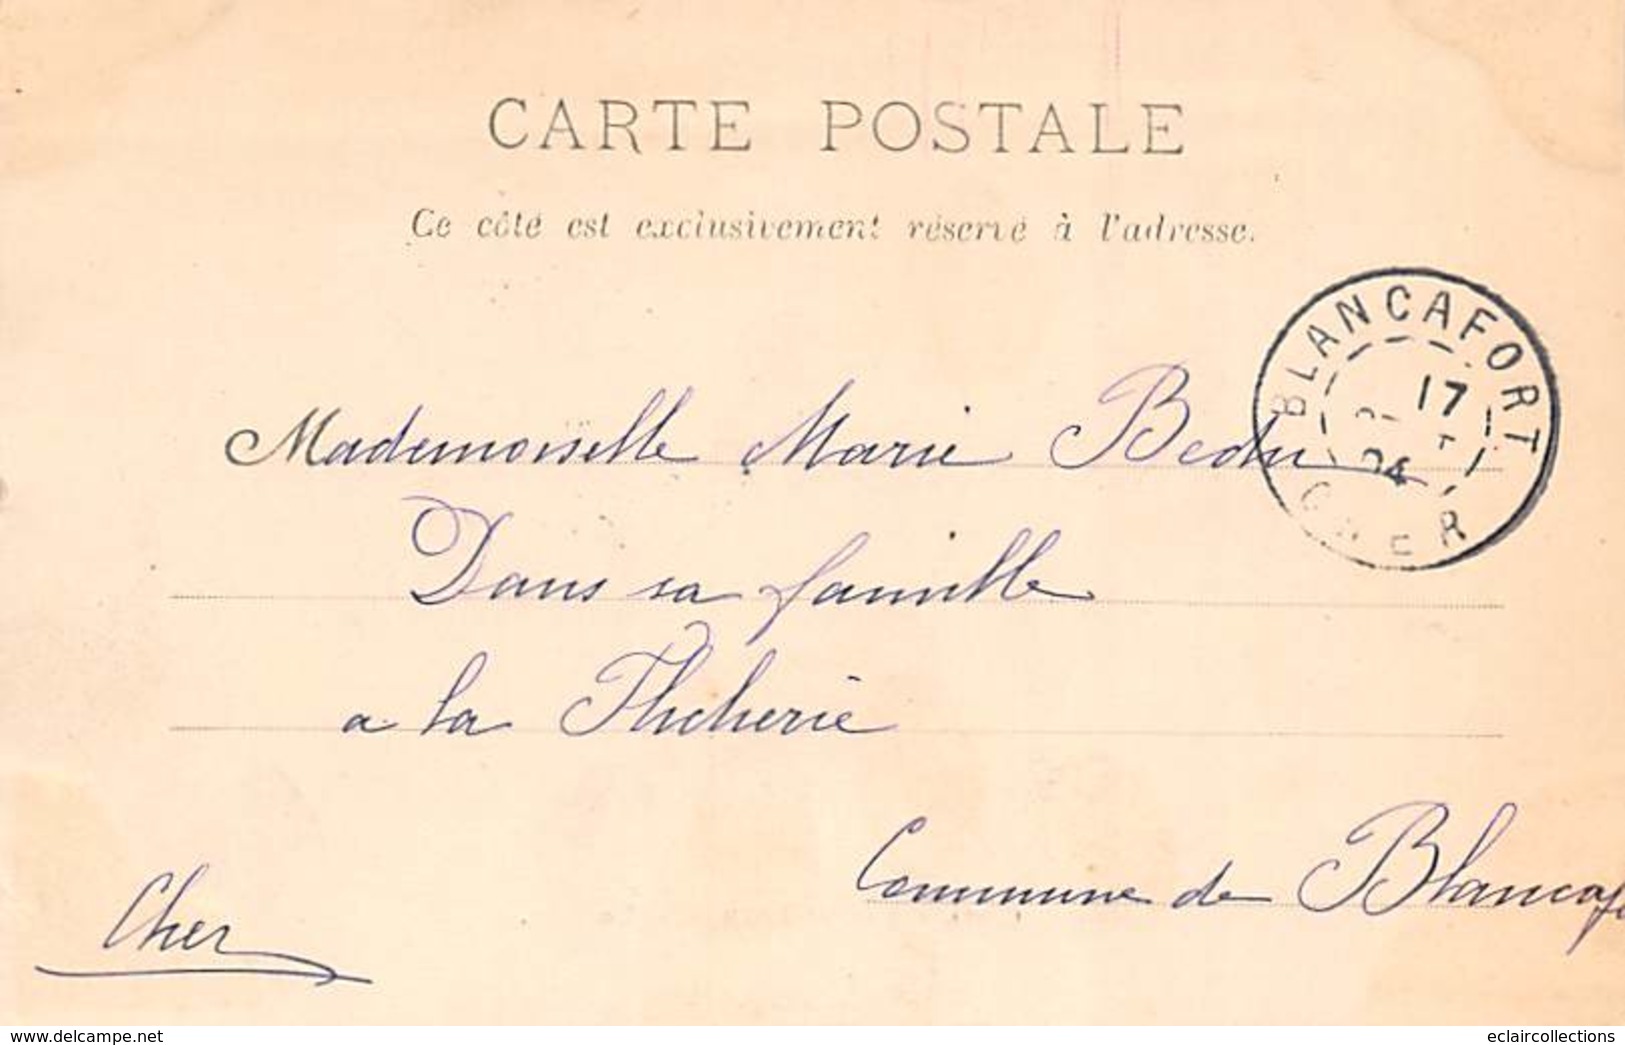 CARTE POSTALE
Ce côté est exclusivement réservé à l'adresse.
BLANCAFORT
17
04
CHER
Mademoiselle Marie Bedu
Dans sa famille
a la
Commune de Blancafo
Cher
delcampe.net
eclaircollections